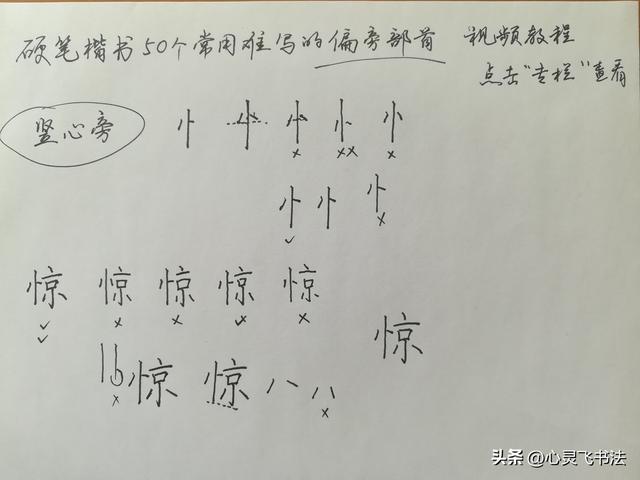 硬笔楷书50个常用难写的偏旁部首 视频教程
点击"专栏"查看
竖心旁 忄 忄 忄 忄 忄
忄 忄 忄
惊 惊 惊 惊 惊
惊
惊 惊
头条 @心灵飞书法